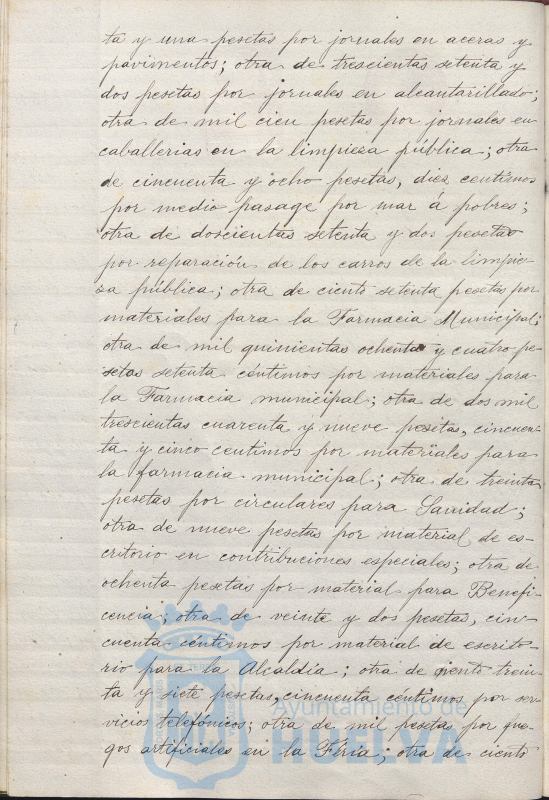 ta y una pesetas por jornales en aceras y
pavimentos; otra de trescientas setenta y
dos pesetas por jornales en alcantarillado;
otra de mil cien pesetas por jornales en
caballerias en la limpieza pública; otra
de cincuenta y ocho pesetas, diez centimos
por medio pasage por mar á pobres;
otra de doscientas setenta y dos pesetas
por reparación de los carros de la limpie-
za pública; otra de ciento setenta pesetas por
materiales para la Farmacia Municipal;
otra de mil quinientas ochenta y cuatro pe-
setas setenta céntimos por materiales para
la Farmacia municipal; otra de dos mil
trescientas cuarenta y nueve pesetas, cincuen-
ta y cinco centimos por materiales para
la farmacia municipal; otra de treinta
pesetas por circulares para Sanidad;
otra de nueve pesetas por material de es-
critorio en contribuciones especiales; otra de
ochenta pesetas por material para Benefi-
cencia; otra de veinte y dos pesetas, cin-
cuenta céntimos por material de escrito-
rio para la Alcaldía; otra de ciento trein-
ta y siete pesetas, cincuenta centimos por ser-
vicios telefónicos; otra de mil pesetas por fue-
gos artificiales en la Féria; otra de ciento
Ayuntamiento de
HUELVA